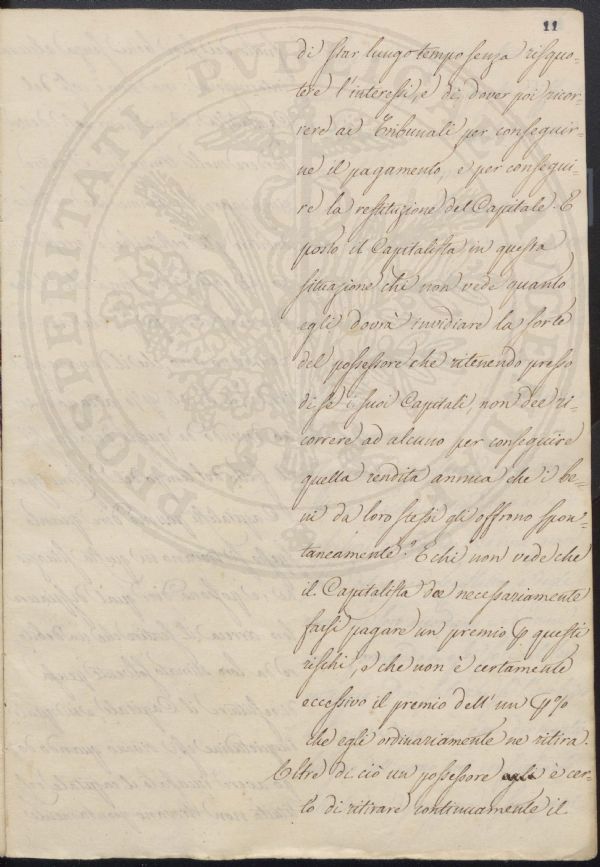 11
di star lungo tempo senza risquo-
tere l'interessi, e di dover poi ricor-
rere ai Tribunali per conseguir-
ne il pagamento, e per consegui-
re la restituzione del Capitale. E
posto il Capitalista in questa
situazione chi non vede quanto
egli dovrà invidiare la sorte
del possessore che ritenendo presso
di se i suoi Capitali, non dee ri-
correre ad alcuno per conseguire
quella rendita annua che i be-
ni da loro stessi gli offrono spon-
taneamente? E chi non vede che
il Capitalista dee necessariamente
farsi pagare un premio p questi
rischi, e che non è certamente
eccessivo il premio dell'un p%
che egli ordinariamente ne ritira.
Oltre di ciò un possessore è cer-
to di ritirare continuamente il
PROSPERITATI PUBLICAE